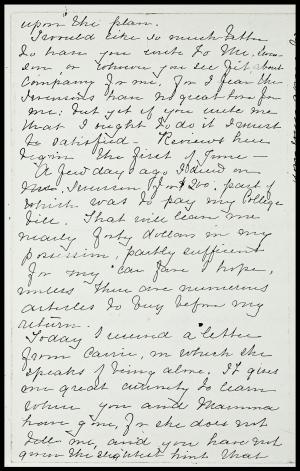 upon the plan.
I would like so much better
to have you write to Mr.
or whoever you see fit about
Company for me. For I fear the
have no great love for
me: but yet if you write me
that I ought to do it I must
be satisfied — Reviews have
begun the first of June —
A few days ago I drew on
$200. part of
which was to pay my College
bill. That will leave me
nearly forty dollars in my
possession, partly sufficient
for my car fare I hope,
unless there are numerous
articles to buy before my
return.
Today I received a letter
from Carrie, in which she
speaks of being alone. It gives
me great curiosity to learn
where you and Mamma
have gone, for she does not
tell me, and you have not
given the slightest hint that